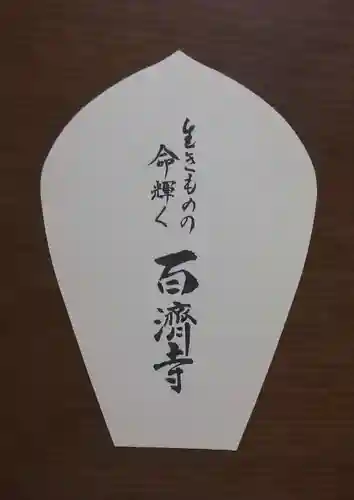 生きものの
命輝く
百濟寺